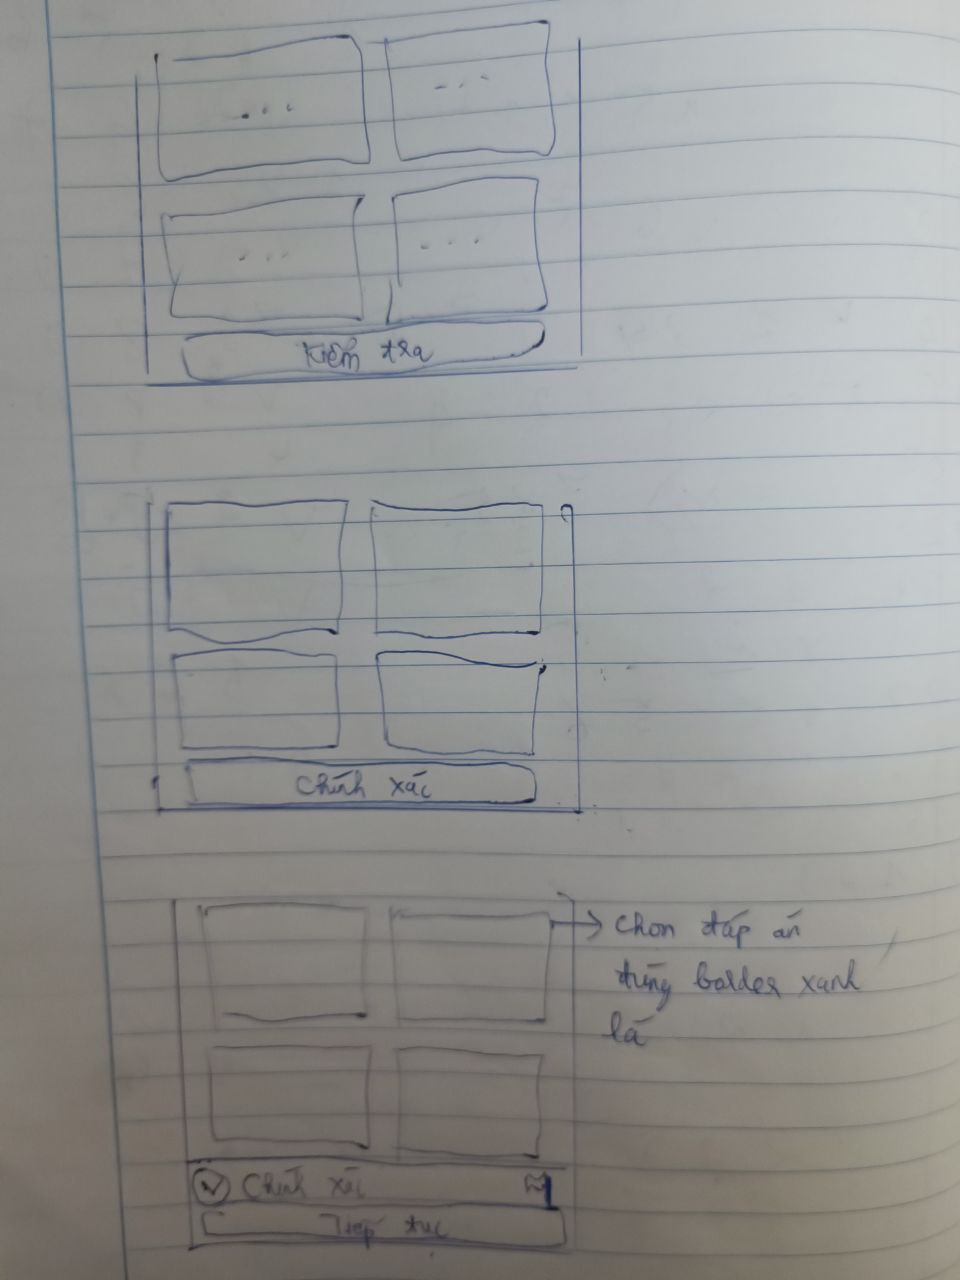 ...
...
...
...
Kiểm tra
Chính xác
Chọn đáp án
đúng border xanh
lá
Chính xác
Tiếp tục